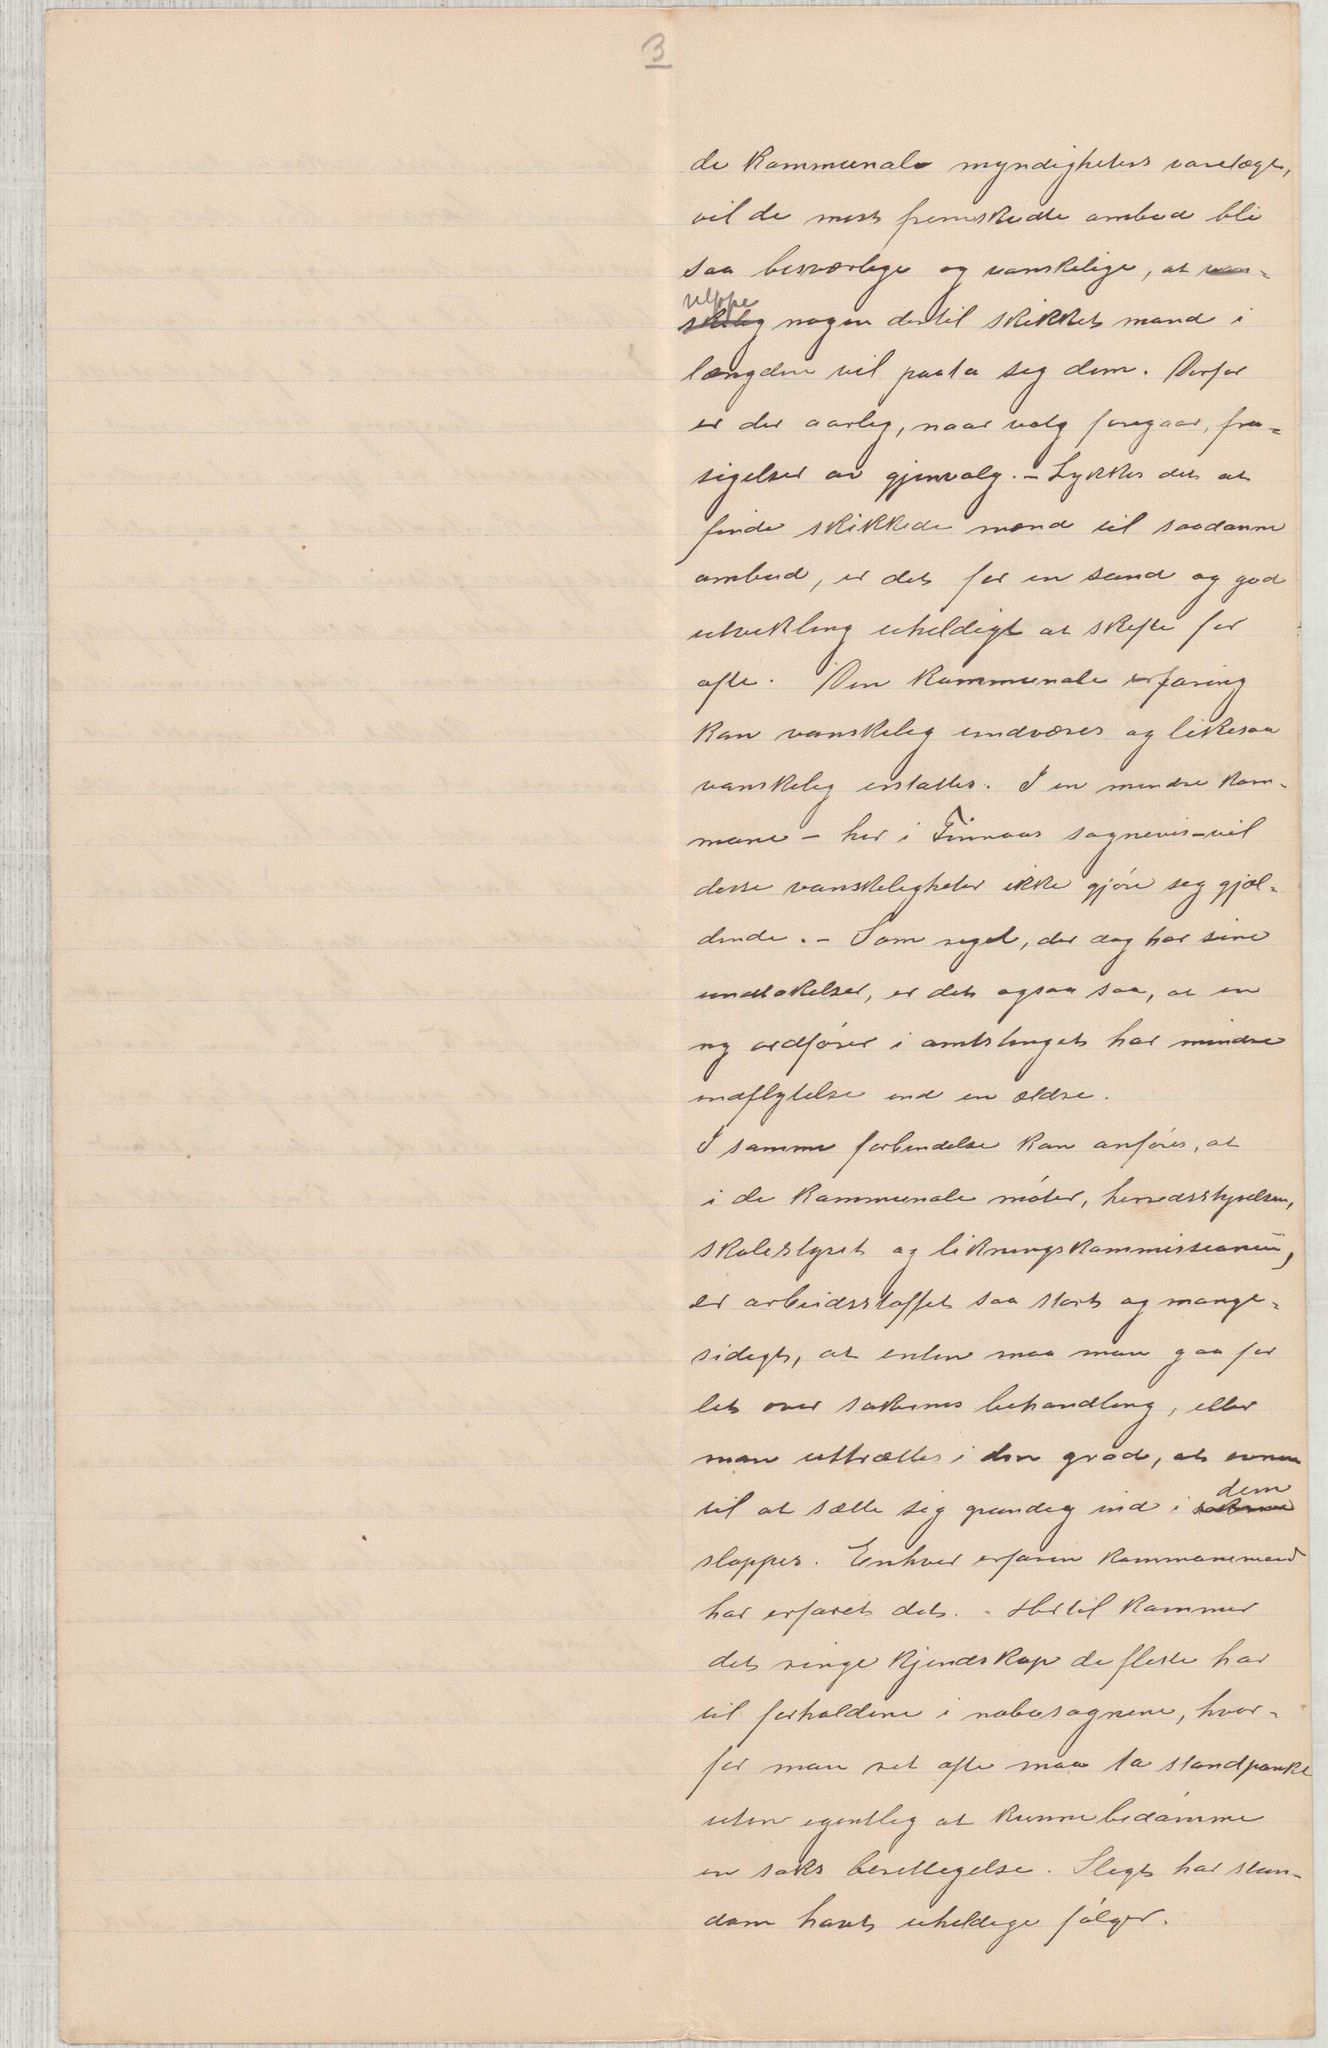 3
de kommunale myndigheters varetægt,
vil de mest fremskudte ombud bli
saa besværlige og vanskelige, at van-
neppe
skelig nogen dertil skikket mand i
længden vil paata sig dem. Derfor
er der aarlig, naar valg foregaar, fra-
sigelser av gjenvalg. - Lykkes det at
finde skikkede mænd til saadanne
ombud, er det for en sund og god
utvikling uheldigt at skifte for
ofte. Den kommunale erfaring
kan vanskelig undværes og likesaa
vanskelig erstattes. I en mindre kom-
mune - her i Finnaas sognevis - vil
disse vanskeligheter ikke gjøre sig gjæl-
dende. - Som regel, der dog har sine
undtakelser, er det ogsaa saa, at en
ny ordfører i amtstinget har mindre
indflytelse end en ældre.
I samme forbindelse kan anføres, at
i de kommunale møter, herredsstyrelsen,
skolestyret og likningskommissionen,
er arbeidsstoffet saa stort og mange-
sidigt, at enten maa man gaa for
let over sakernes behandling, eller
man uttrættes i den grad, at evnen
dem
til at sætte sig grundig ind i sakerne
slappes. Enhver erfaren kommunemand
har erfaret det. - Hertil kommer
det ringe kjendskap de fleste har
til forholdene i nabosognene, hvor-
for man ret ofte maa ta standpunkt
uten egentlig at kunne bedømme
en saks berettigelse. Sligt har stun-
dom havt uheldige følger.